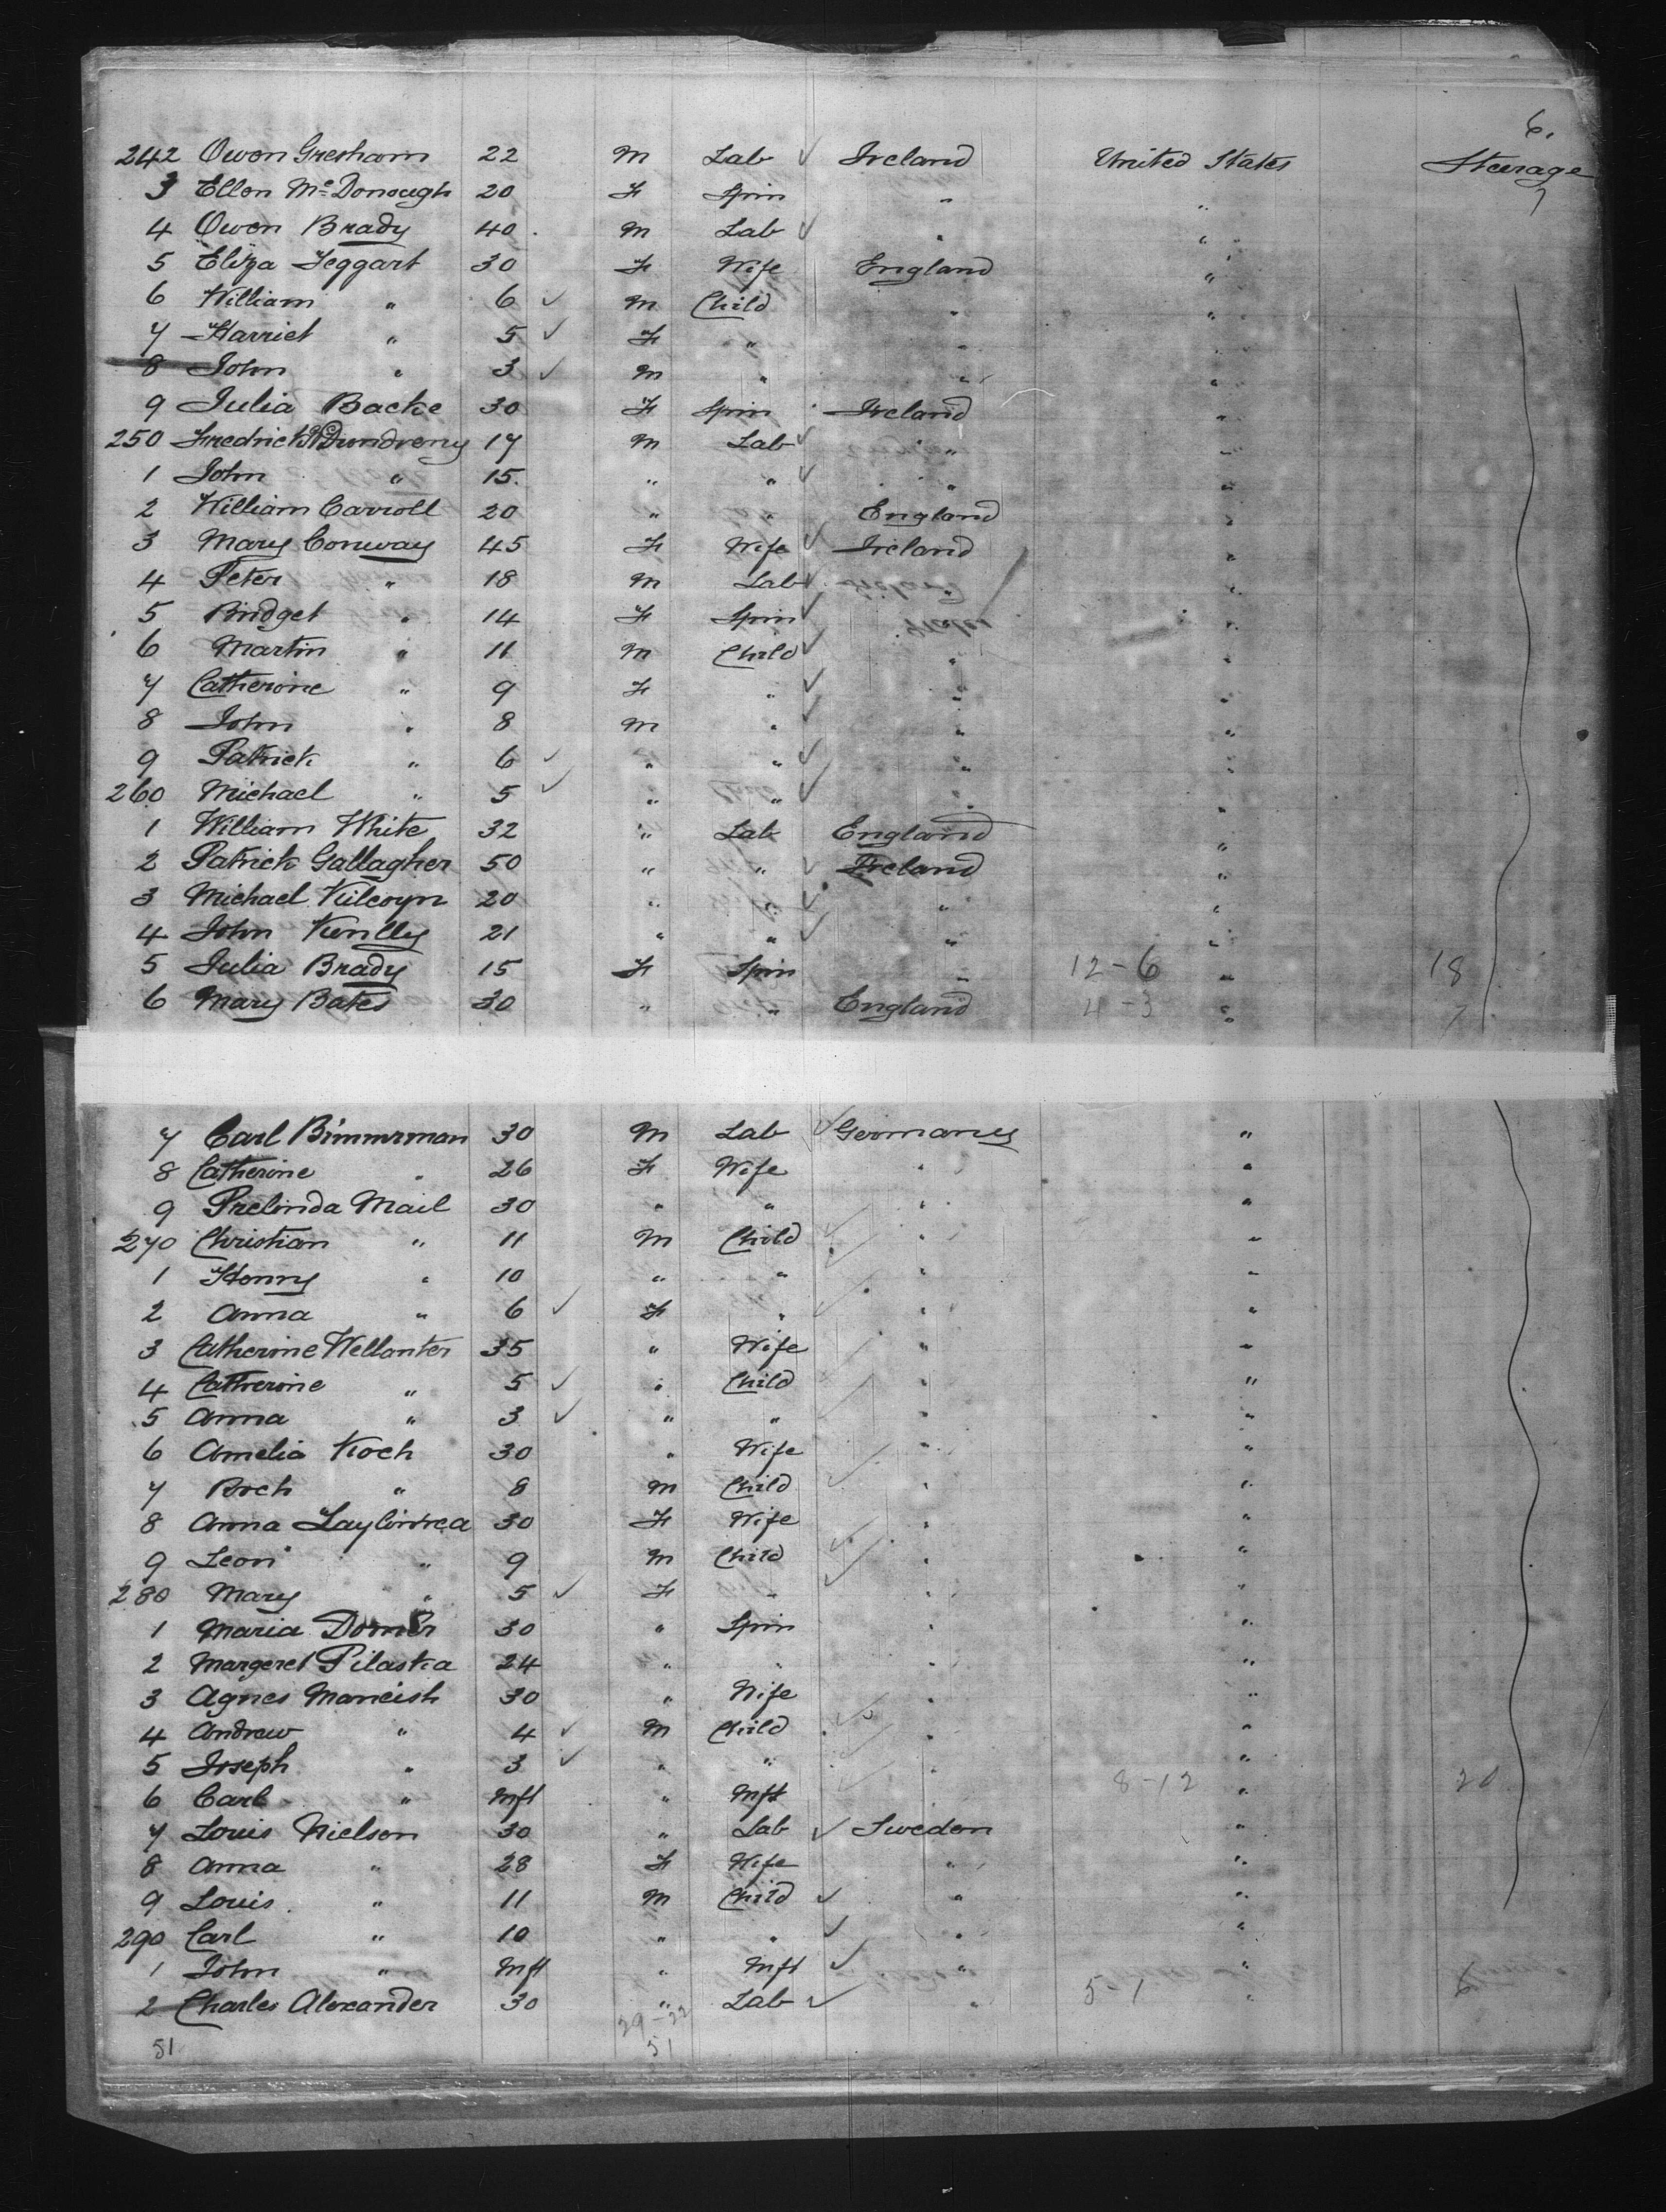 6.
242 Owen Gresham 22 M Lab ✓ Ireland United States Steerage
3 Ellen Mc Donough 20 F Spin " "
4 Owen Brady 40 M Lab ✓ " "
5 Eliza Teggart 30 F Wife England "
6 William " 6 ✓ M Child " "
7 Harriet " 5 ✓ F " " "
8 John " 3 ✓ M " " "
9 Julia Backe 30 F Spin Ireland "
250 Fredrick 17 M Lab ✓ " "
1 John " 15 " " ✓ " "
2 William Carroll 20 " " England "
3 Mary Conway 45 F Wife ✓ Ireland "
4 Peter " 18 M Lab ✓ " "
5 Bridget " 14 F Spin ✓ "
6 Martin " 11 M Child ✓ " "
7 Catherine " 9 F " ✓ " "
8 John " 8 M " ✓ " "
9 Patrick " 6 ✓ " " ✓ " "
260 Michael " 5 ✓ " " ✓ " "
1 William White 32 " Lab England "
2 Patrick Gallagher 50 " " ✓ Ireland "
3 Michael Kilcoyn 20 " " ✓ " "
4 John 21 " " ✓ " "
5 Julia Brady 15 F Spin " 12-6 " 18
6 Mary Bates 30 " " England 4-3 " 7
7 Carl Bimmerman 30 M Lab ✓ Germany "
8 Catherine " 26 F Wife " "
9 Mail 30 " " " "
270 Christian " 11 M Child ✓ " "
1 Henry " 10 " " ✓ " "
2 Anna " 6 ✓ F " ✓ " "
3 Catherine Wellanter 35 " Wife " "
4 Catherine " 5 ✓ " Child " "
5 Anna " 3 ✓ " " " "
6 Amelia Koch 30 " Wife " "
7 " 8 M Child ✓ " "
8 Anna 30 F Wife " "
9 Leon " 9 M Child ✓ " "
280 Mary " 5 ✓ F " ✓ " "
1 Maria 30 " Spin " "
2 Margeret Pilaska 24 " " " "
3 Agnes Maneish 30 " Wife " "
4 Andrew " 4 ✓ M Child ✓ " "
5 Joseph " 3 ✓ " " " "
6 Carl " Inft " Inft ✓ " 8-12 " 20
7 Louis Nielson 30 " Lab ✓ Sweden "
8 Anna " 28 F Wife " "
9 Louis " 11 M Child ✓ " "
290 Carl " 10 " " ✓ " "
1 John " Inft " Inft ✓ " "
2 Charles Alexander 30 " Lab ✓ " 5-1 " 6
51 29-22
51